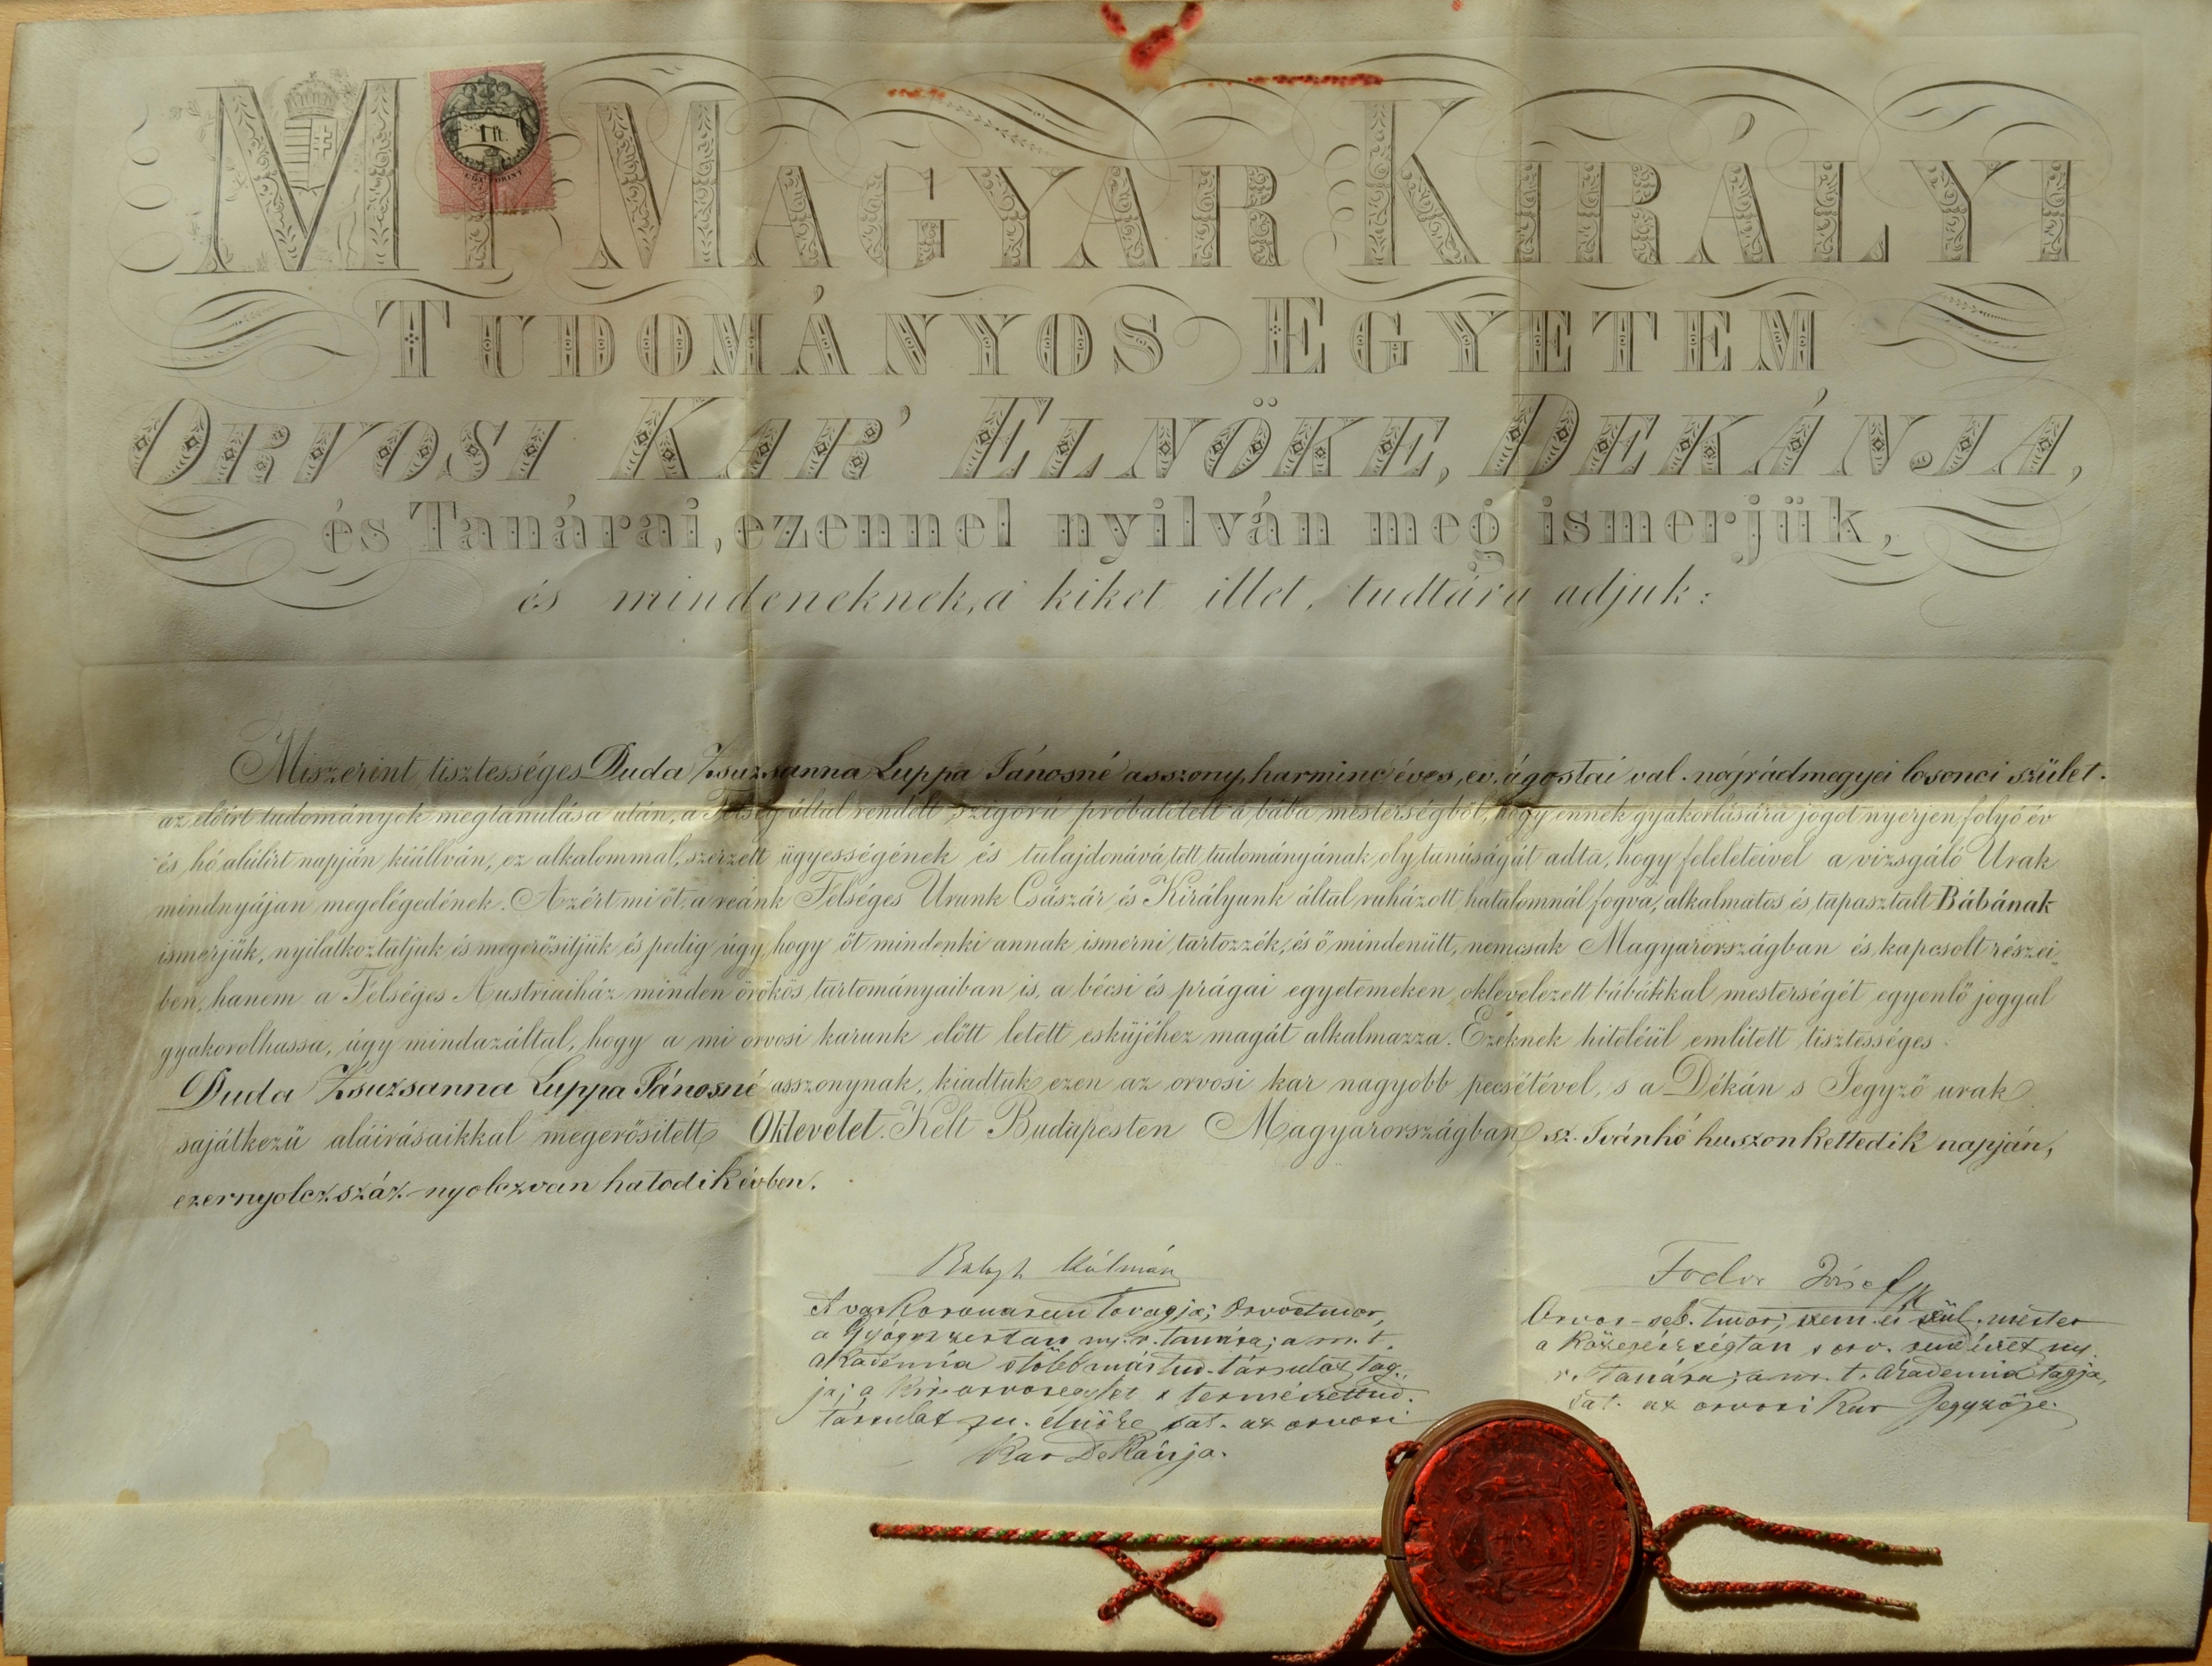 MI MAGYAR KIRÁLYI
1 ft.
EGY FORINT
TUDOMÁNYOS EGYETEM
ORVOSI KAR' ELNÖKE, DEKÁNJA,
és Tanárai, ezennel nyilván meg ismerjük,
és mindeneknek, a kiket illet, tudtára adjuk:
Miszerint tisztességes Duda Zsuzsanna Luppa Jánosné asszony, harminc éves, ev. ágostai val. nógrádmegyei losonci szület.
az előírt tudományok megtanulása után, a Felség által rendelt szigorú próbatételt a bába mesterségből, hogy ennek gyakorlására jogot nyerjen, folyó év
és hó alúlírt napján kiállván, ez alkalommal, szerzett ügyességének és tulajdonává tett tudományának oly tanúságát adta, hogy feleleteivel a vizsgáló Urak
mindnyájan megelégedének. Azért mi őt, a reánk Felséges Urunk Császár és Királyunk által ruházott hatalomnál fogva, alkalmatos és tapasztalt Bábának
ismerjük, nyilatkoztatjuk és megerősítjük és pedig úgy, hogy őt mindenki annak ismerni tartozzék, és ő mindenütt, nemcsak Magyarországban és kapcsolt részei-
ben, hanem a Felséges Austriaiház minden örökös tartományaiban is, a bécsi és prágai egyetemeken oklevelezett bábákkal mesterségét egyenlő joggal
gyakorolhassa, úgy mindazáltal, hogy a mi orvosi karunk előtt letett esküjéhez magát alkalmazza. Ezeknek hiteléül említett tisztességes
Duda Zsuzsanna Luppa Jánosné asszonynak, kiadtuk ezen az orvosi kar nagyobb pecsétével, s a Dékán s Jegyző urak
sajátkezü aláirásaikkal megerősitett Oklevelet. Kelt Budapesten Magyarországban, sz. Ivánhó huszonkettedik napján,
ezernyolczszáz-nyolczvan hatodik évben.
Balogh Kálmán
A vas Koronarend lovagja; Orvostudor,
a Gyógyszertan ny. r. tanára; a m. t.
akadémia s több más tud. társulat tag-
ja; a kir. orvosegylet s természettud.
társulat elnöke sat. az orvosi
Kar Dékánja.
Fodor József
Orvos-seb. tudor; szem. és szül. mester
a közegészségtan s orv. rendészet ny.
r. tanára; a m. t. akademia tagja,
sat. az orvosi Kar Jegyzője.